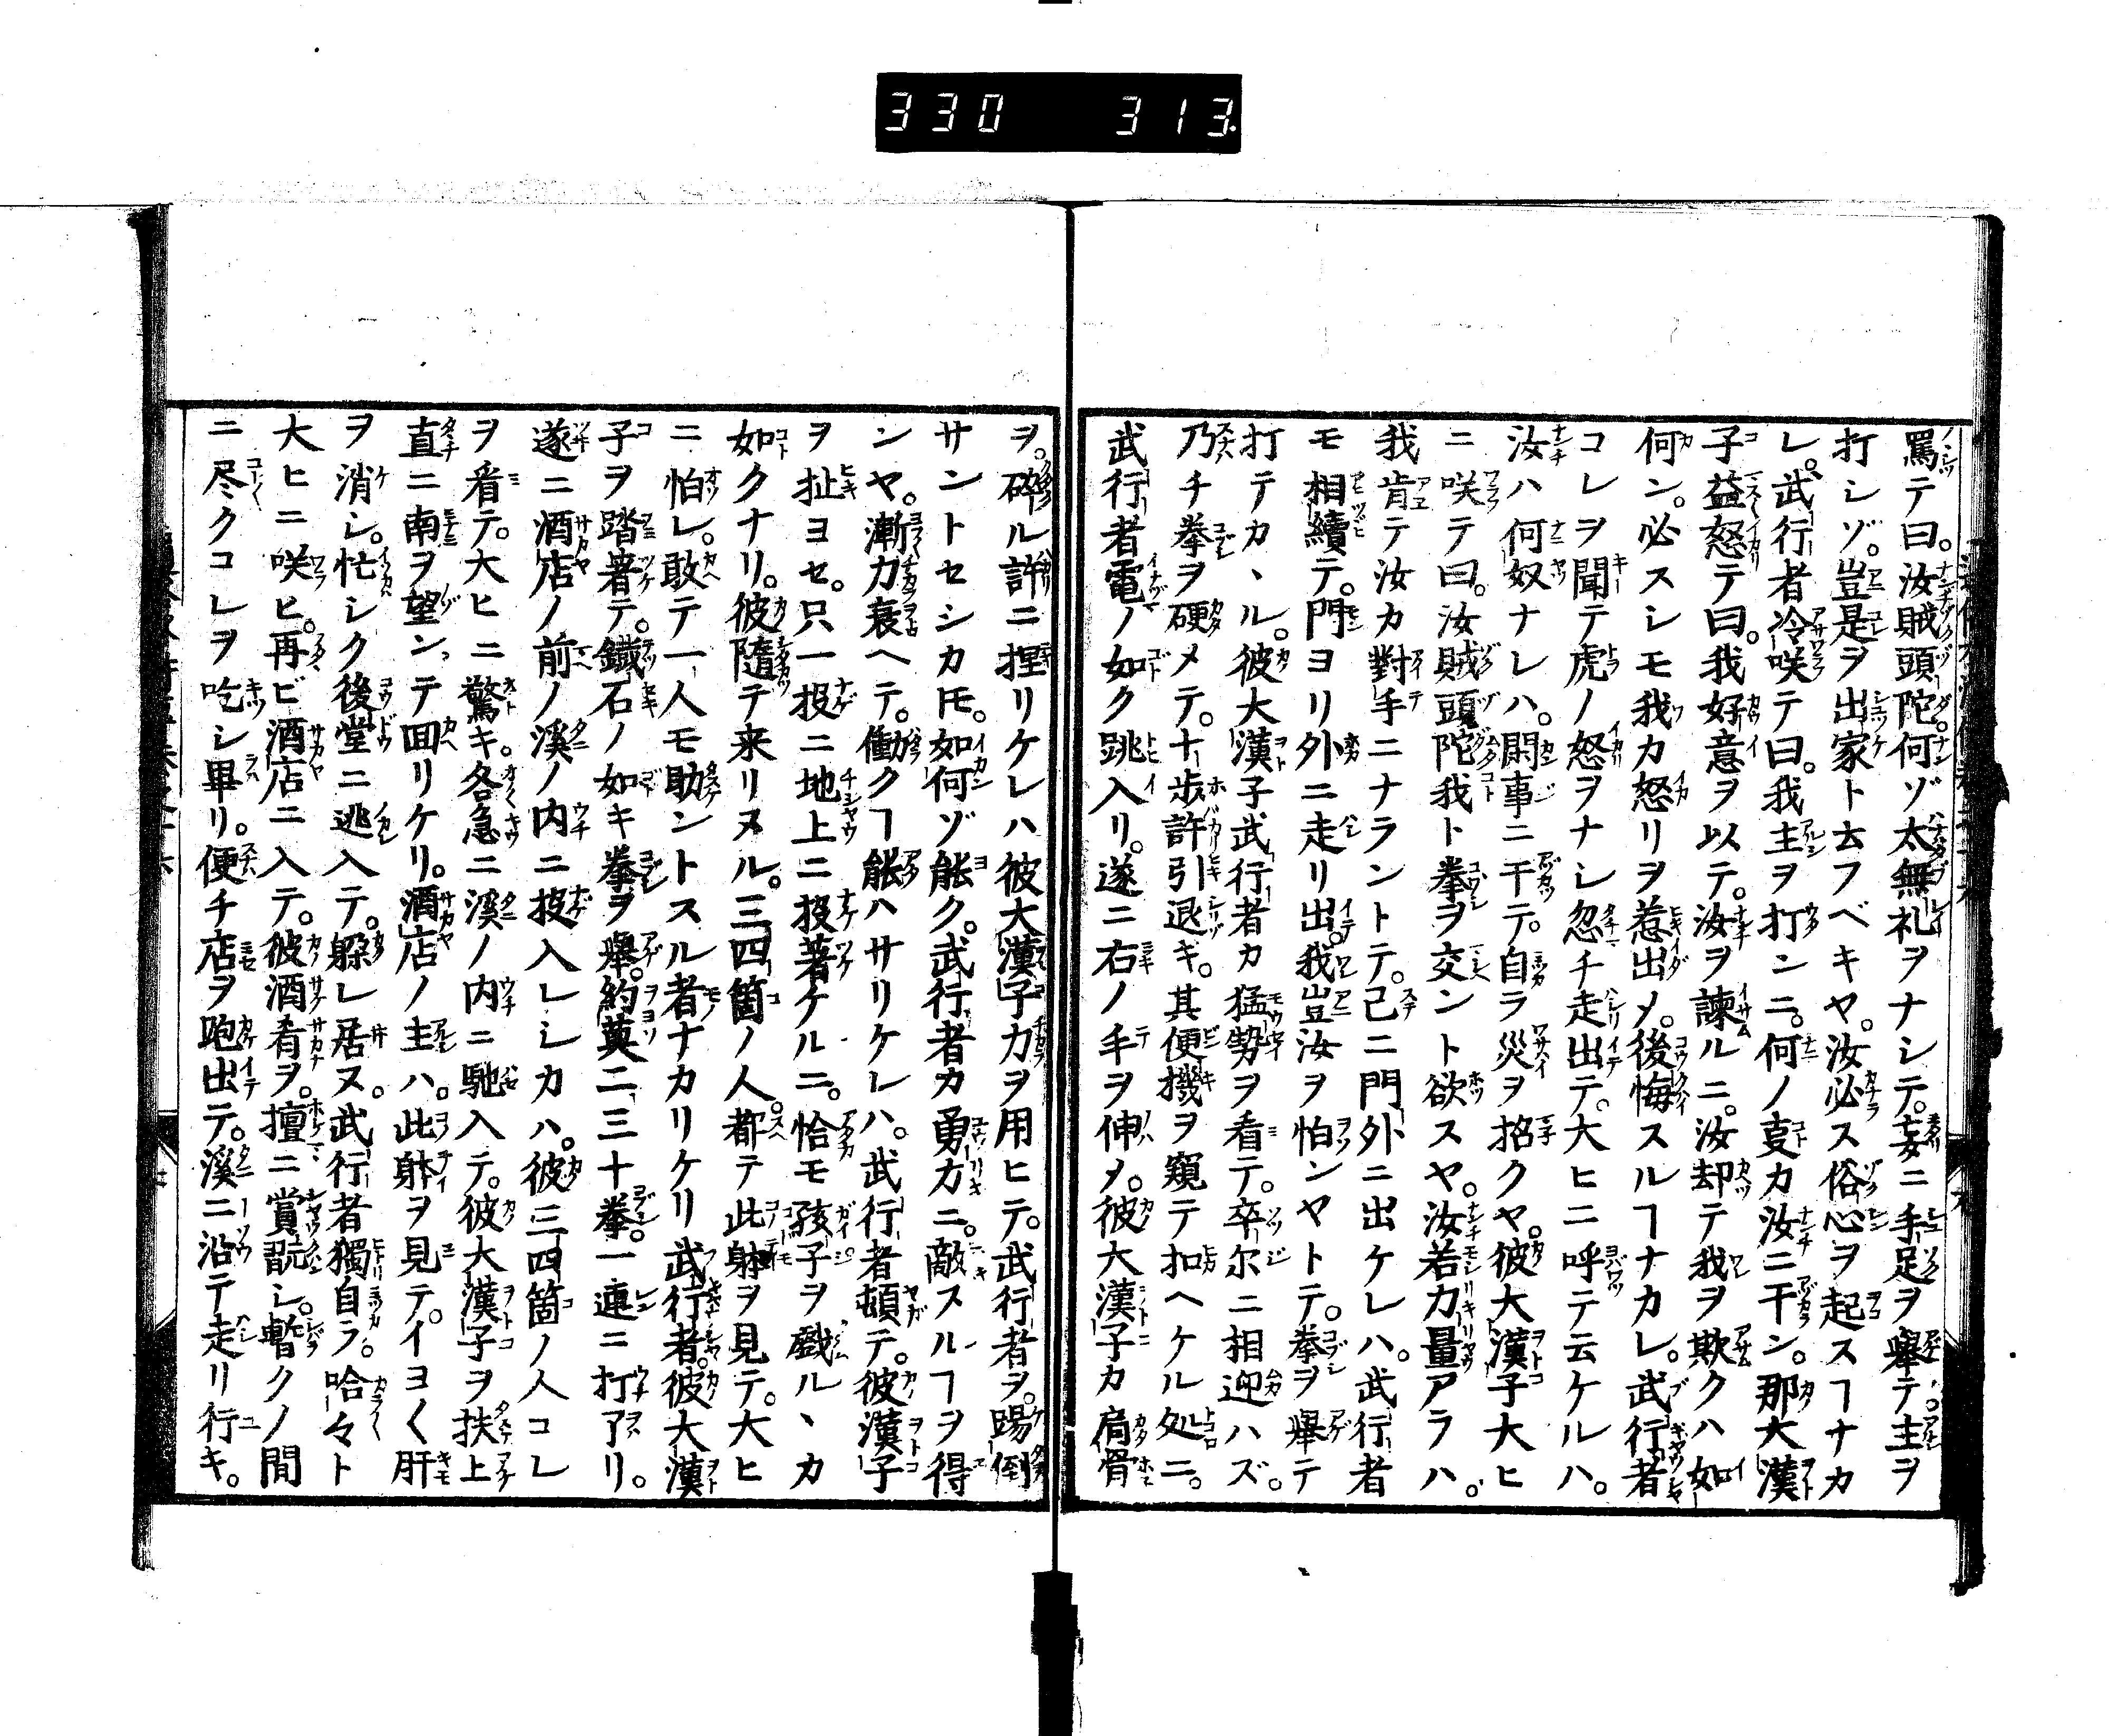 330 313
罵テ曰。汝賊頭陀。何ゾ太無礼ヲナシテ。妄ニ手足ヲ舉テ。主ヲ
打シゾ。豈是ヲ出家ト云フベキヤ。汝必ス俗心ヲ起スヿナカ
レ。武行者冷咲テ曰。我主ヲ打ンニ。何ノ叓カ汝ニ干ン。那大漢
子益怒テ曰。我好意ヲ以テ。汝ヲ諫ルニ。汝却テ我ヲ欺クハ如
何ン。必スシモ我カ怒リヲ惹出メ。後悔スルヿナカレ。武行者
コレヲ聞テ虎ノ怒ヲナシ忽チ走出テ。大ヒニ呼テ云ケルハ。
汝ハ何奴ナレハ。閑事ニ干テ。自ラ災ヲ招クヤ。彼大漢子大ヒ
ニ咲テ曰。汝賊頭陀我ト拳ヲ交ント欲スヤ。汝若力量アラハ。
我肯テ汝カ對手ニナラントテ。已ニ門外ニ出ケレハ。武行者
モ相續テ。門ヨリ外ニ走リ出。我豈汝ヲ怕ンヤトテ。拳ヲ舉テ
打テカヽル。彼大漢子武行者カ猛勢ヲ看テ。卒尓ニ相迎ハズ。
乃チ拳ヲ硬メテ。十歩許引退キ。其便機ヲ窺テ扣ヘケル処ニ。
武行者電ノ如ク跳入リ。遂ニ右ノ手ヲ伸メ。彼大漢子カ肩骨
ヲ。碎ル許ニ捏リケレハ彼大漢子力ヲ用ヒテ。武行者ヲ。踢倒
サントセシカ𪜈。如何ゾ能ク。武行者カ勇力ニ。敵スルヿヲ得
ンヤ。漸力衰ヘテ。働クヿ能ハサリケレハ。武行者頓テ。彼漢子
ヲ扯ヨセ。只一投ニ地上ニ投著ケルニ。恰モ孩子ヲ戯ルヽカ
如クナリ。彼隨テ来リヌル。三四箇ノ人。都テ此躰ヲ見テ。大ヒ
ニ怕レ。敢テ一人モ助ントスル者ナカリケリ武行者。彼大漢
子ヲ踏著テ。鐵石ノ如キ拳ヲ舉。約莫二三十拳。一連ニ打了リ。
遂ニ酒店ノ前ノ溪ノ内ニ投入レシカハ。彼三四箇ノ人コレ
ヲ看テ。大ヒニ驚キ。各急ニ溪ノ内ニ馳入テ。彼大漢子ヲ扶上
直ニ南ヲ望ンテ回リケリ。酒店ノ主ハ。此躰ヲ見テ。イヨ〱肝
ヲ消シ。忙シク後堂ニ逃入テ。躲レ居ヌ。武行者獨自ラ。哈々ト
大ヒニ咲ヒ。再ビ酒店ニ入テ。彼酒肴ヲ。擅ニ賞翫シ。暫クノ間
ニ尽クコレヲ吃シ畢リ。便チ店ヲ跑出テ。溪ニ沿テ走リ行キ。